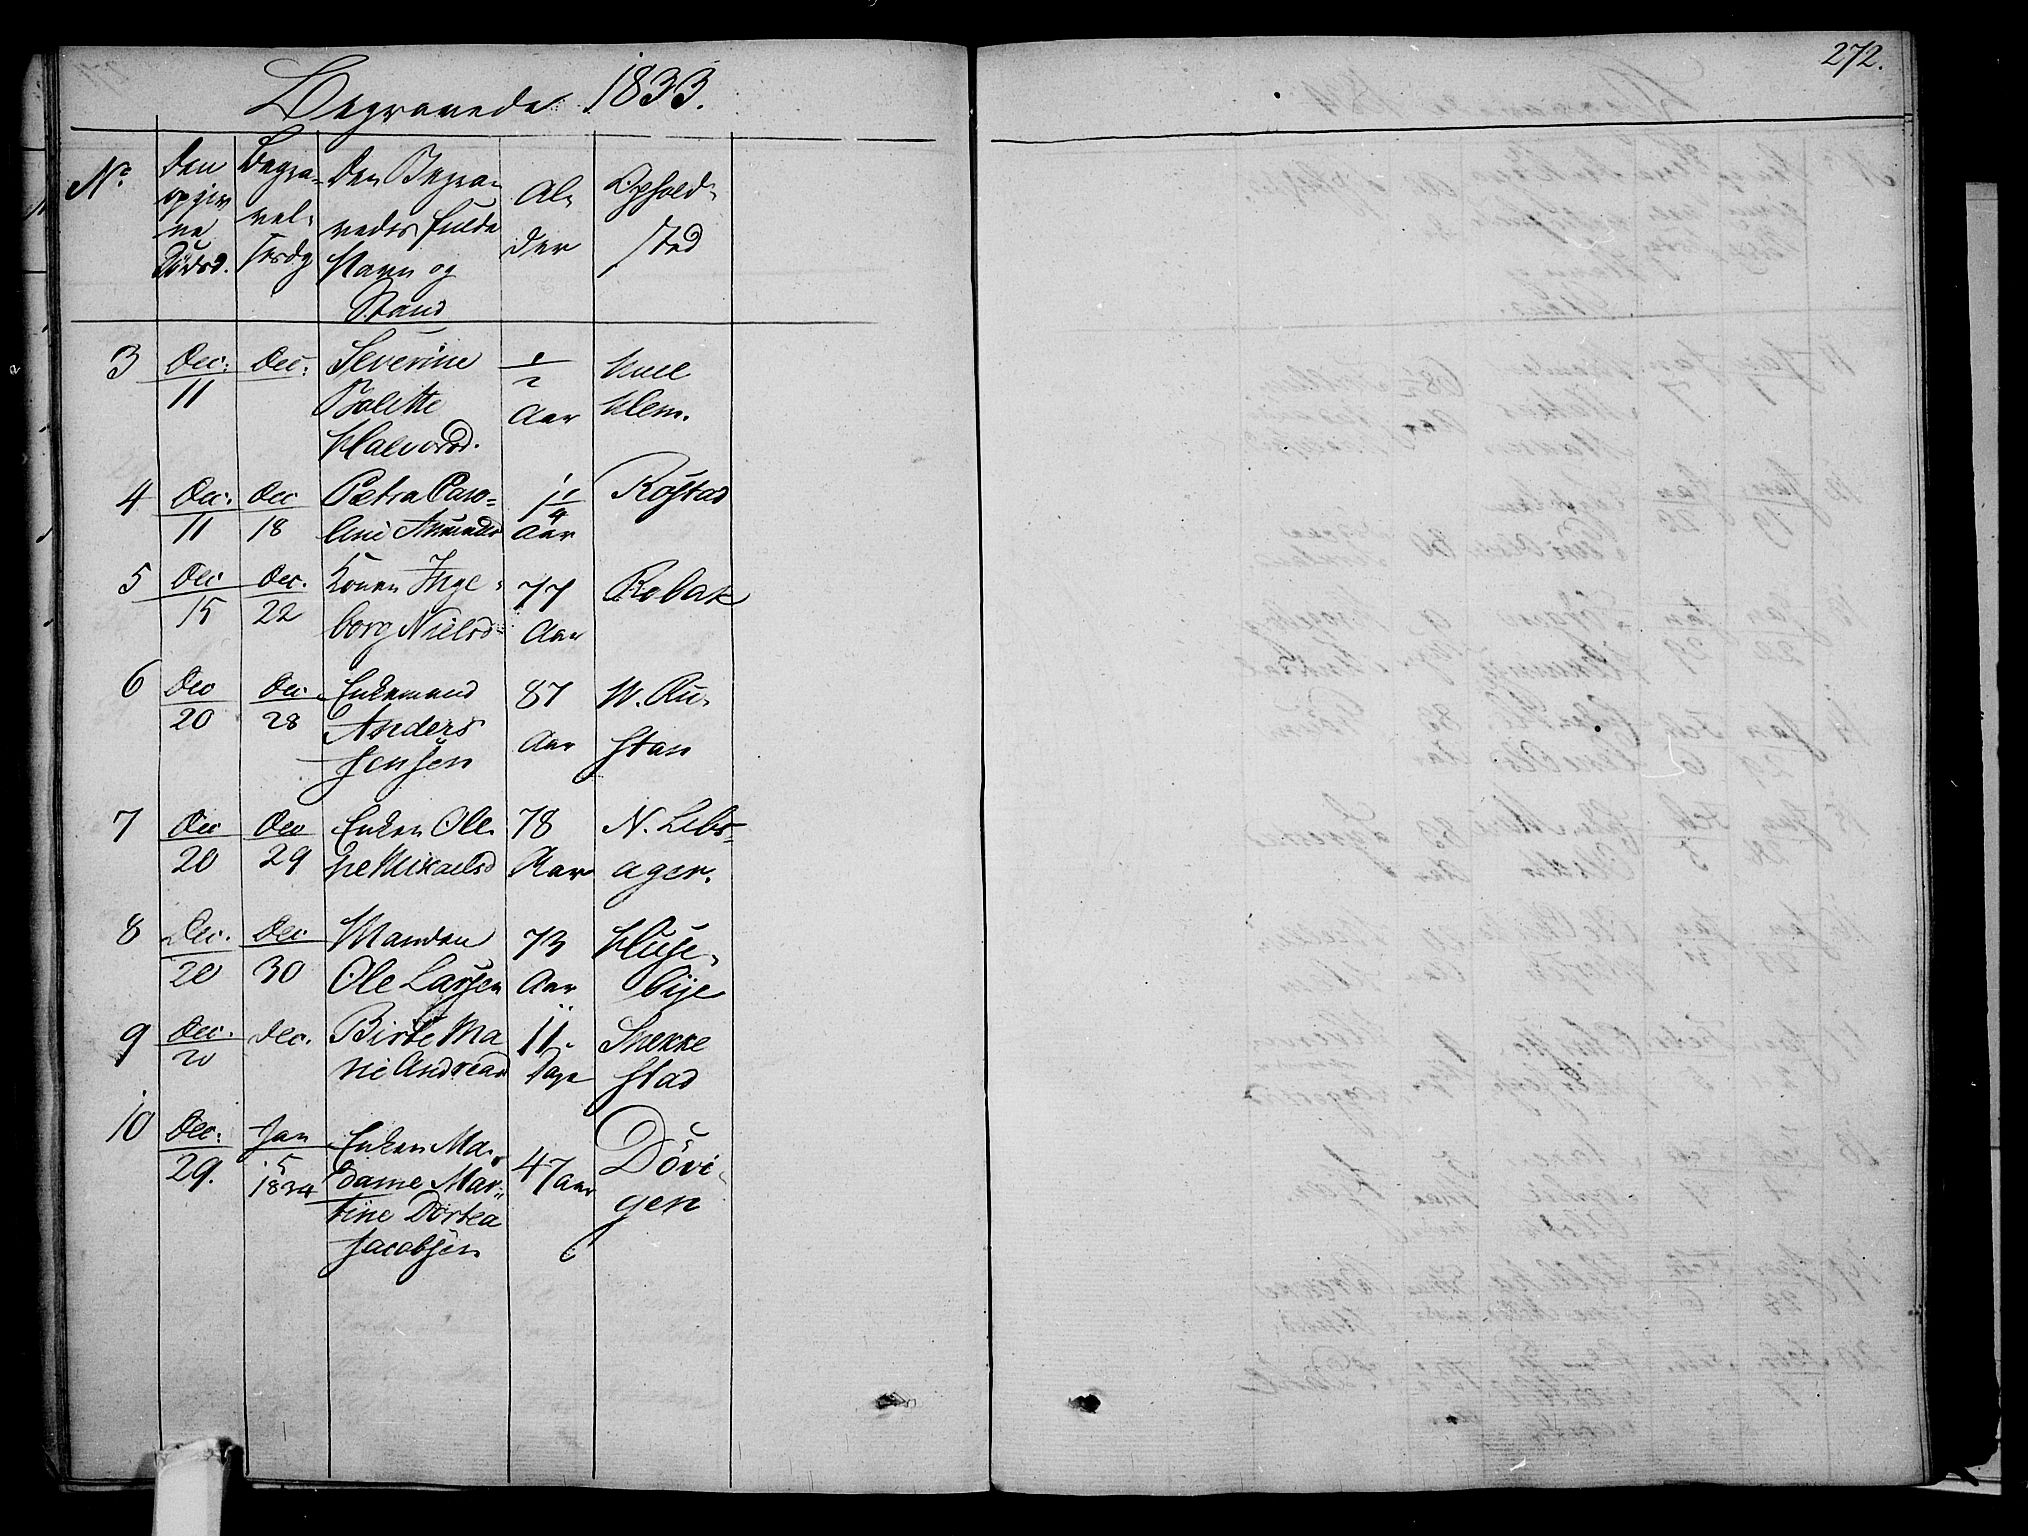 272.
Begravede 1833.
No. Den opgivne Dödsd. Begravelsesdag Den Begravedes fulde Navn og Stand Alder Opholdsted
3 Dec: 11 Dec: Severine Bolette Halvorsd. 1/2 Aar
4 Dec. 11 Dec 18 Petra Caroline Amundsd 1 1/4 Aar Rostad
5 Dec 15 Dec. 22 Konen Ingeborg Nielsd. 77 Aar Robak
6 Dec 20 Dec. 28 Enkemand Anders Jensen 87 Aar
7 Dec 20 Dec 29 Enken Oline Mikaelsd 78 Aar N. Lebsager.
8 Dec. 20 Dec 30 Manden Ole Larsen 73 Aar Husebÿe
9 Dec. 20 Dec. Birte Marie Andreasd 11 Dage Snekkestad
10 Dec: 29. Jan 5 1834 Enken Madame Martine Dortea Jacobsen 47 Aar Dövigen